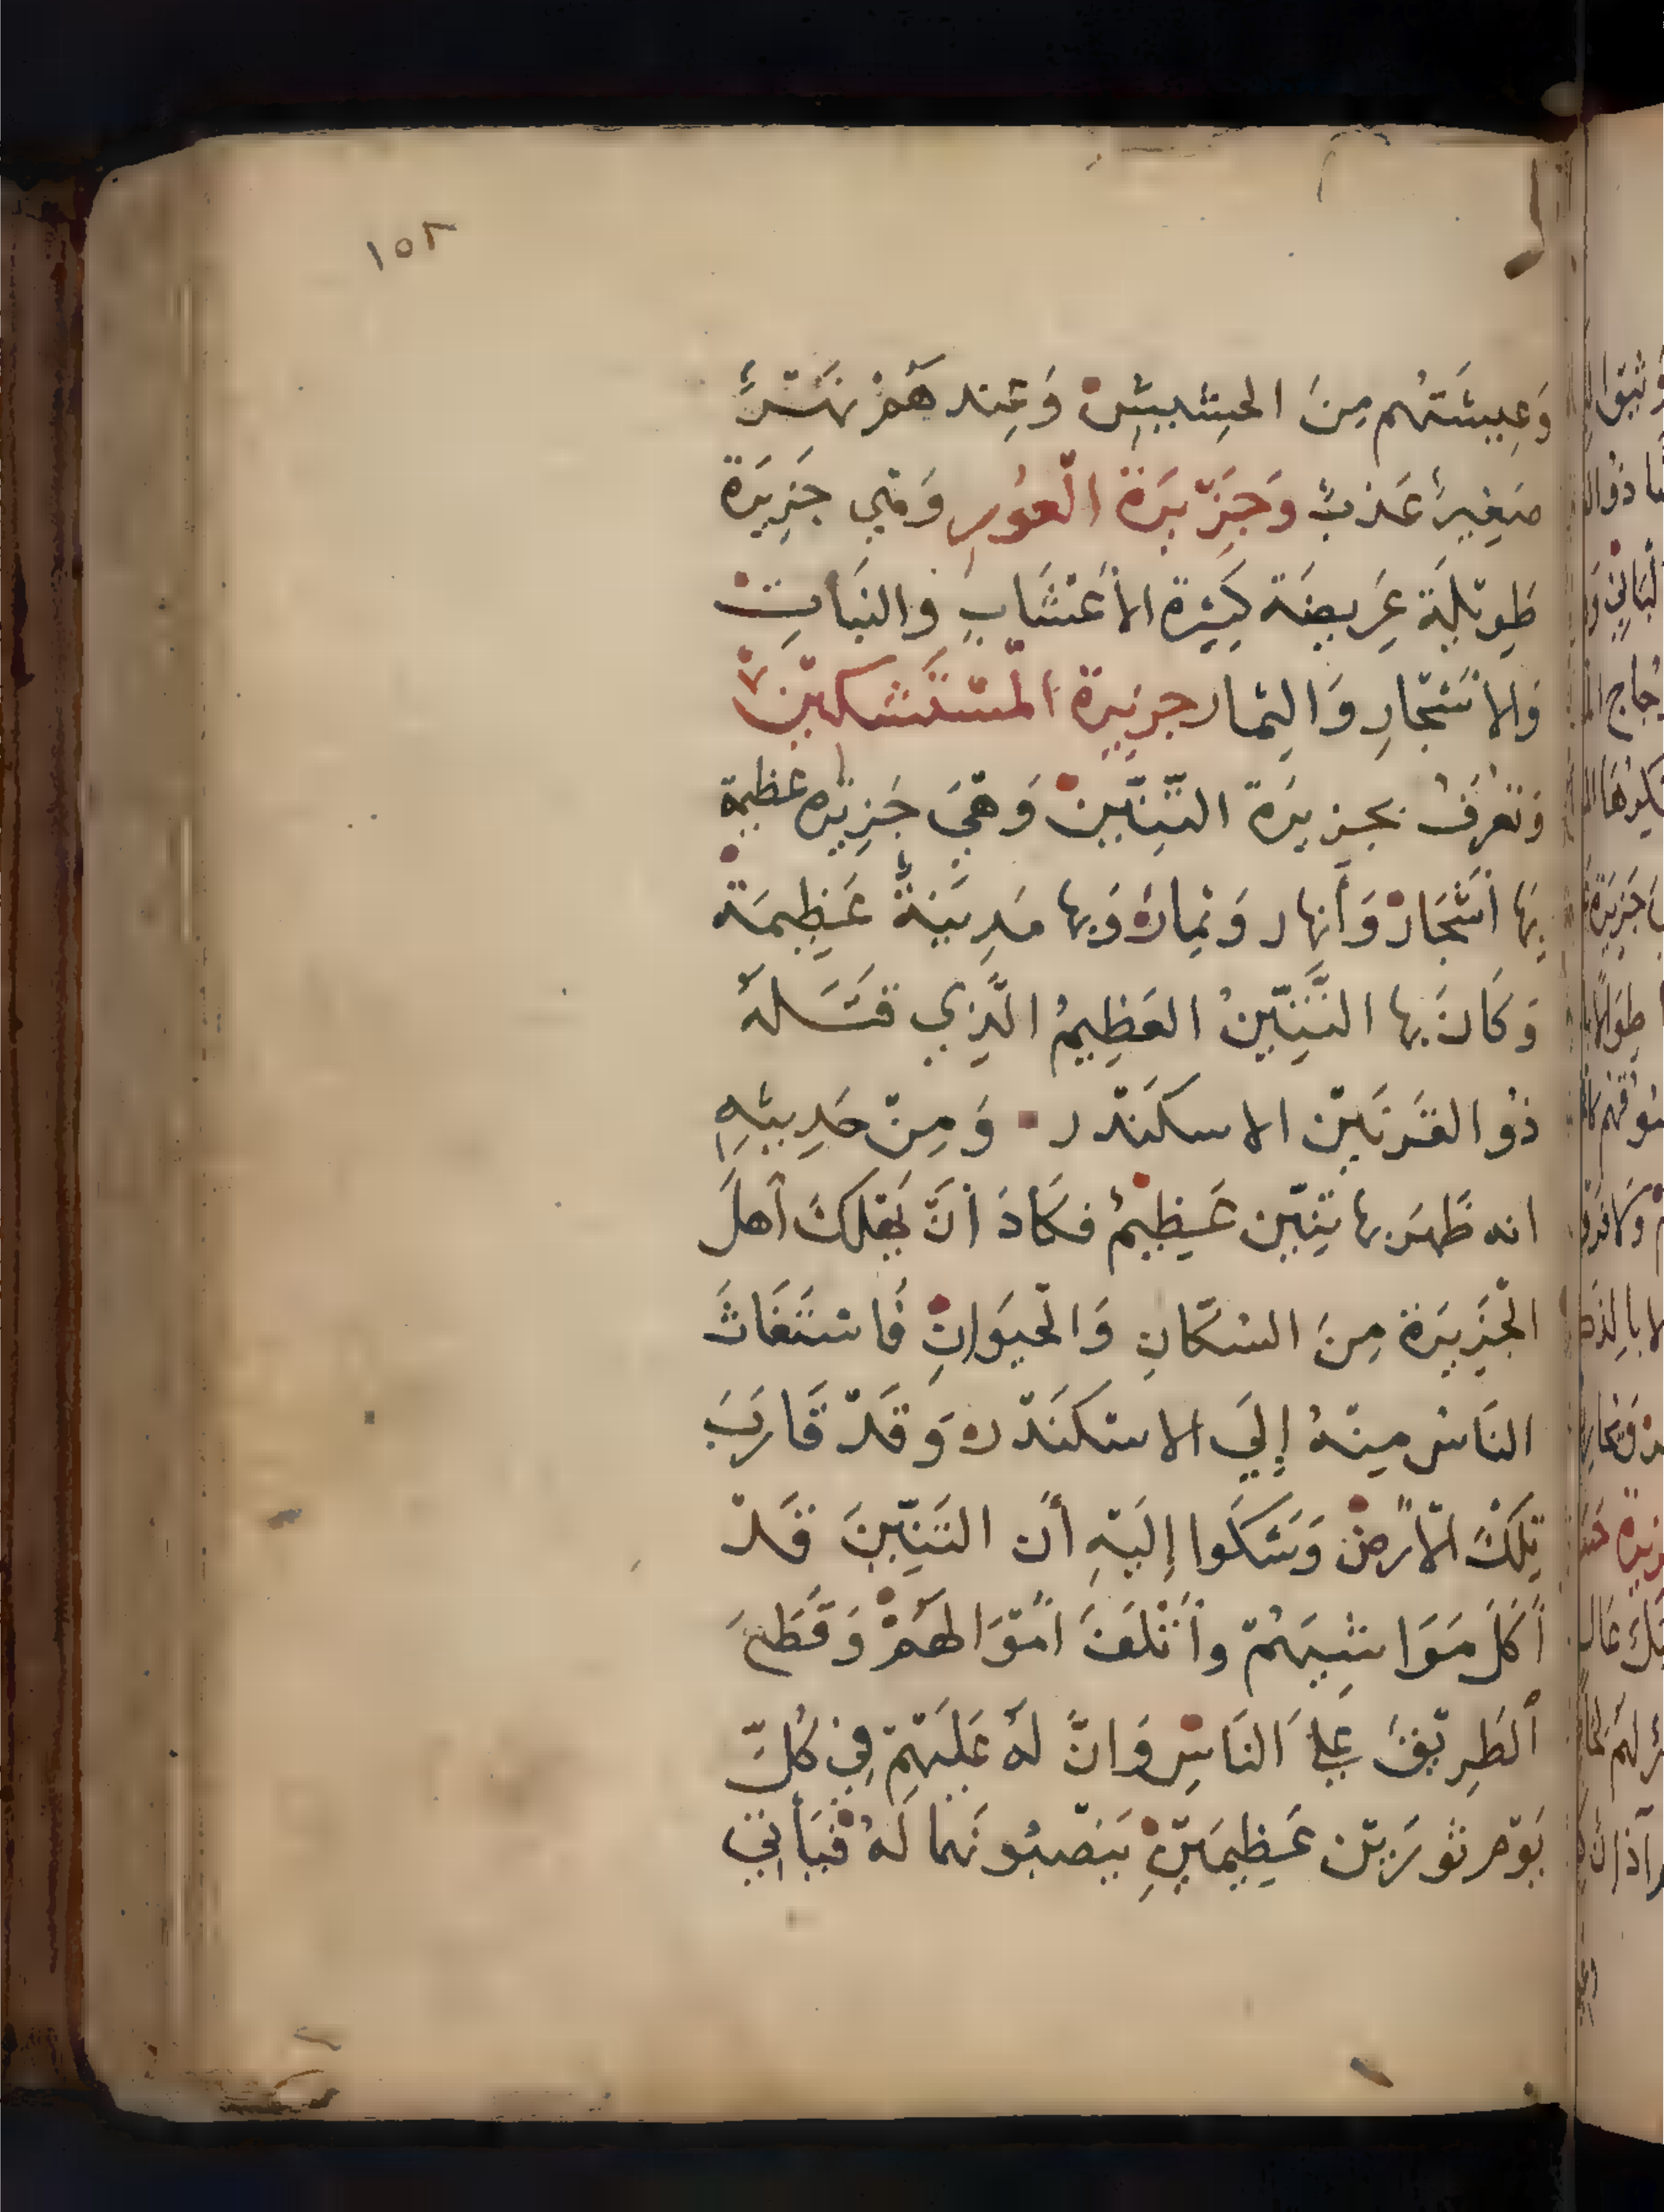 ١٥٢
وَعِيشَتُهُم مِنَ الحَشِيشِ وَعِندهَمْ نهَرٌ
صَغِيرٌ عَذبٌ وَجَزِيرَة الْغَورِ وَهِي جَزِيرَة
طَوِيلَة عَرِيضَة كَثِيرَة الأعْشَابِ وَالنَبَاتِ
وَالاشَجَارِ وَالثِمار جزيرة الْمستَشكين
وَتعرَفُ بجزيرَة التِنّينْ وَهيَ جَزِيرَه عظيمة
بِهَا أشْجَارْ وَأنهار وَثِمارْ وَبها مَدِينَةٌ عَظِيمَة
وَكَانَ بها التّنِّينُ العَظِيمُ الَّذِي قتَلهُ
ذُو القَرنَينْ الاسكَندر وَمِنْ حَدِيثِهِ
انه ظَهَر بها تِنِّين عَظِيْمٌ فكَادَ أنَّ يَهْلكَ أهلَ
الْجَزِيرَة مِنَ السُكَّانِ وَالْحيَوانِ فَاسْتَغَاثَ
النَاسْ مِنْهُ إِليَ الاسْكَندْر وَقَدْ قَارَبَ
تِلكَ الْأرضْ وَشَكَوا إِليَهِ أنَّ التنِّينَ قَدْ
أَكَلَ مَوَاشِيهَمْ وأَتْلَفَ أمْوَالهَمْ وَقَطَعَ
ألطَرِيْقَ عَلىَ النَاسِ وَانَّ لَهُ عَلَيهَمْ فِي كُلِّ
يَوْم ثورَيْن عَظِيمَيْنِ يَنصْبُونَهما لَهُ فيَأتِي